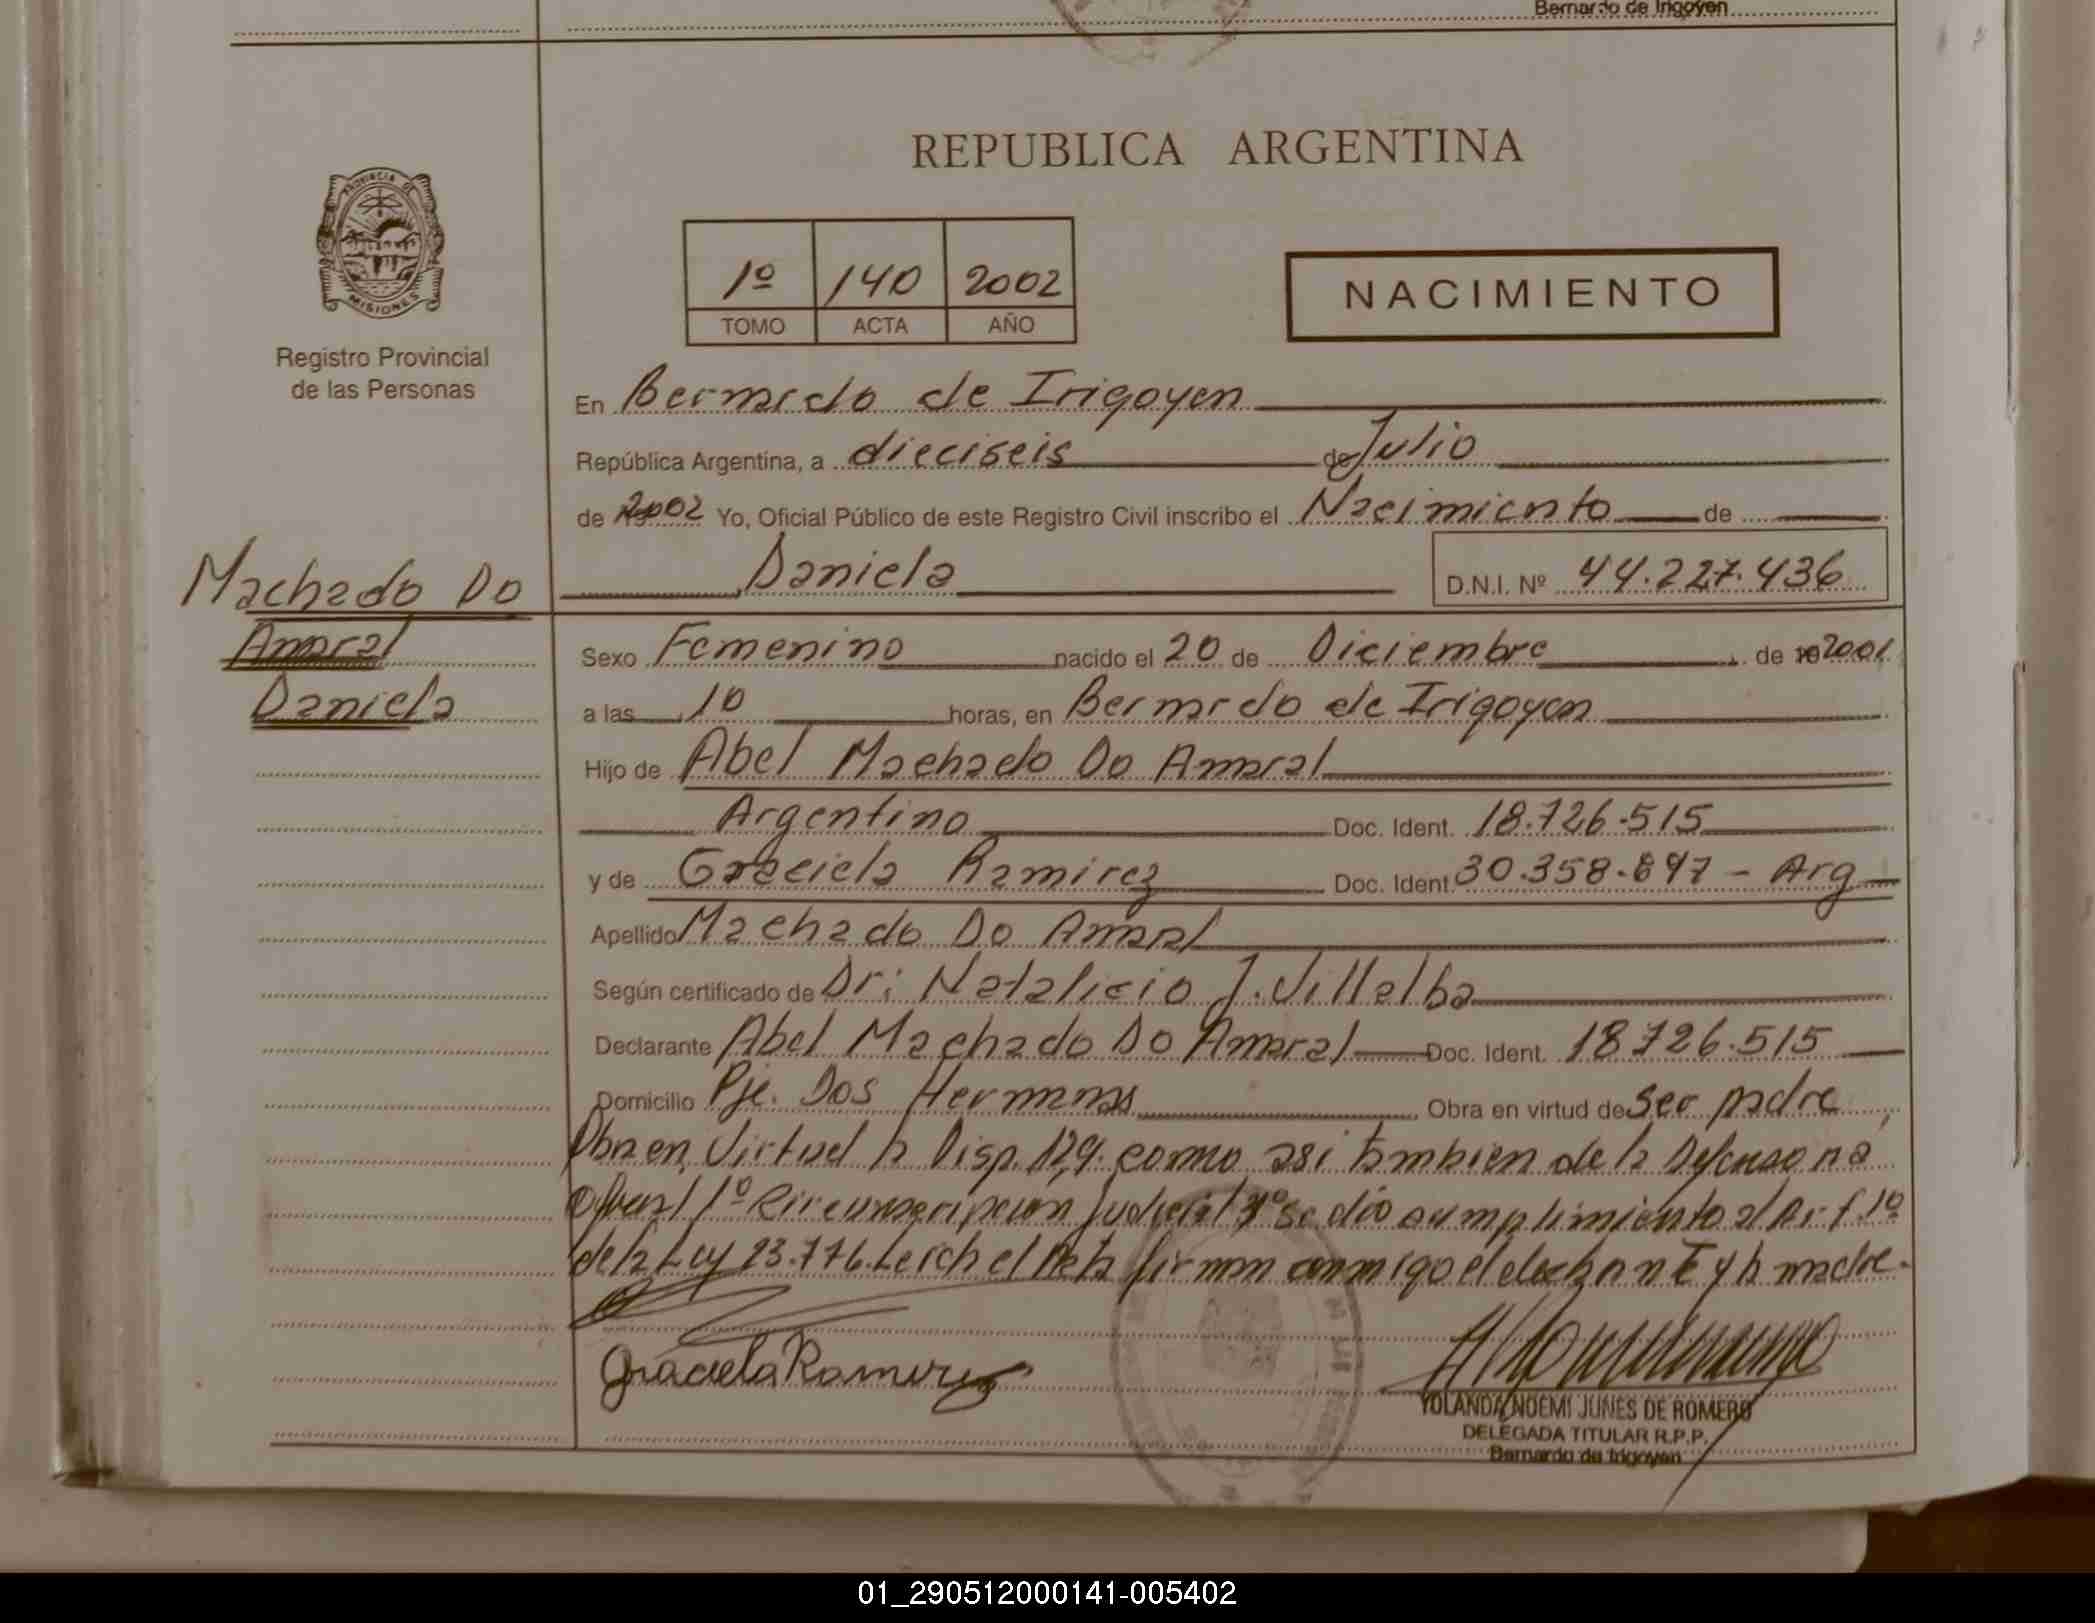 Bernardo de Irigoyen
REPUBLICA ARGENTINA
PROVINCIA DE
MISIONES
Registro Provincial
de las Personas
1º 140 2002
TOMO ACTA AÑO
NACIMIENTO
En Bernardo de Irigoyen
República Argentina, a dieciseis de Julio
de 2002 Yo, Oficial Público de este Registro Civil inscribo el Nacimiento de
Daniela D.N.I. Nº 44.227.436
Machado Do
Amaral
Daniela
Sexo Femenino nacido el 20 de Diciembre de 2001
a las 10 horas, en Bernardo de Irigoyen
Hijo de Abel Machado Do Amaral
Argentino Doc. Ident. 18.726.515
y de Graciela Ramirez Doc. Ident. 30.358.697 - Arg
Apellido Machado Do Amaral
Según certificado de Dr: Natalicio J. Villalba
Declarante Abel Machado Do Amaral Doc. Ident. 18726.515
Domicilio Pje. Dos Hermanas Obra en virtud de ser padre,
Obra en Virtud la Disp. 129. como asi tambien de la Defensora
Oficial 1º Circunscripcion Judicial se dio cumplimiento al Art. 1º
de la Ley 23.776. Leida el Acta firman conmigo el declarante y la madre.
Graciela Ramirez
YOLANDA NOEMI JUNES DE ROMERO
DELEGADA TITULAR R.P.P.
Bernardo de Irigoyen
01_290512000141-005402